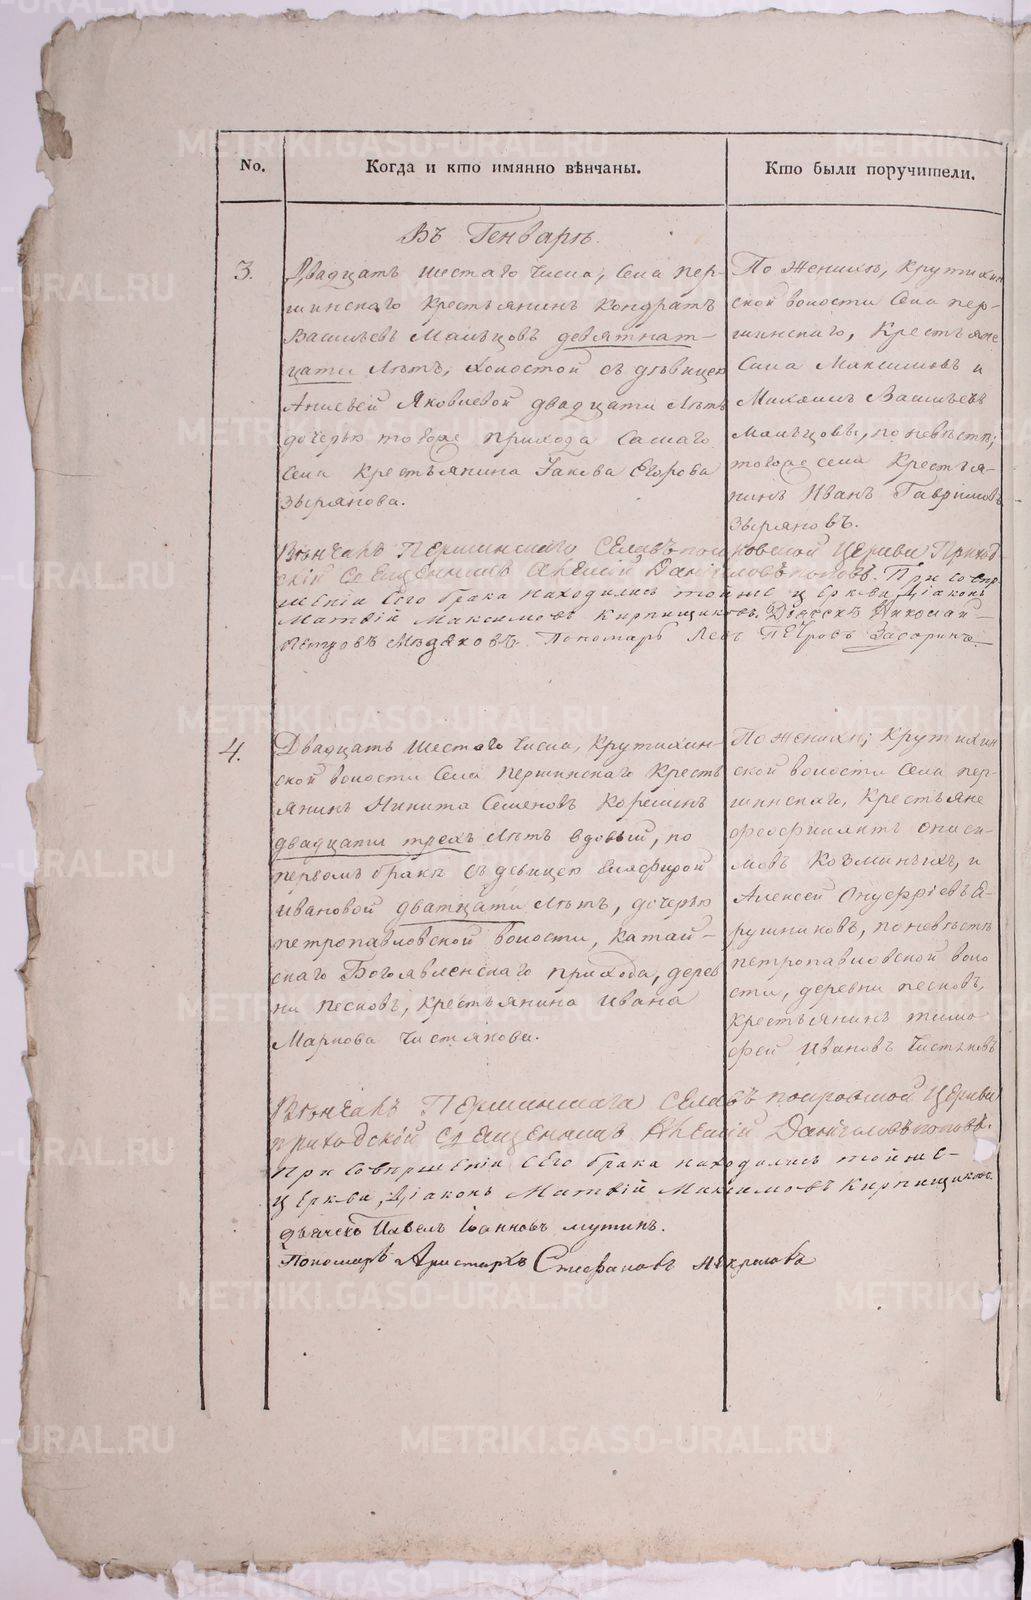 No.
Когда и кто имянно вѣнчаны.
Кто были поручители.
Въ Генварѣ.
3.
Двадцать шестаго числа, Села пер-
шинскаго Крестьянинъ Кондратъ
Васильевъ Мальцовъ девятнат-
цати Лѣтъ, холостой съ дѣвицею
Яковлевой двадцати Лѣтъ
дочерью тогоже прихода самаго
села Крестьянина Iакова Егорова
Зырянова.
По женихѣ, Крутихин
ской волости Села пер-
шинскаго, Крестьяне
Сила Максимовъ и
Михаилъ Васильевъ
Мальцовы, по невѣстѣ;
тогоже села Крестья-
нинъ Иванъ Гавриловъ
Зыряновъ.
Вѣнчалъ Першинскаго Села покровской Церкви Приход
скiй Священникъ Алексiй Данiиловъ поповъ. При совер
шенiи сего брака находились тойже церкви, Дiаконъ
Матвiй Максимовъ Кирпищиковъ. Дьячекъ Николай
Петровъ Пономарь Левъ Петровъ
4.
Двадцать шестого числа, Крутихин-
ской волости Села першинскаго Кресть
янинъ Никита Семеновъ
двадцати трехъ Лѣтъ вдовый, по
первомъ бракѣ съ девицею
Ивановой дватцати Лѣтъ, дочерью
петропавловской волости, Катай-
скаго Богоявленскаго прихода, дерев
ни песковъ, крестьянина Ивана
Маркова Чистякова.
По женихѣ; Крутихин
ской волости Села пер-
шинскаго, Крестьяне
Онеси-
мовъ Козминыхъ, и
Алексей Онуфрiевъ Я-
рушниковъ, по невѣстѣ
петропавловской воло
сти, деревни песковъ,
Крестьянинъ тимо-
фей Ивановъ Чистяковъ
Вѣнчалъ Першинскаго Села покровской Церкви
приходскiй Священникъ Алексiй Данiиловъ поповъ.
При совершенiи сего брака находились тойже
церкви, Дiаконъ Матвiй Максимовъ Кирпищиковъ.
дьячекъ Павелъ Iоанновъ мутинъ.
Пономарь Аристархъ Стефановъ Некрасовъ
METRIKI.GASO-URAL.RU